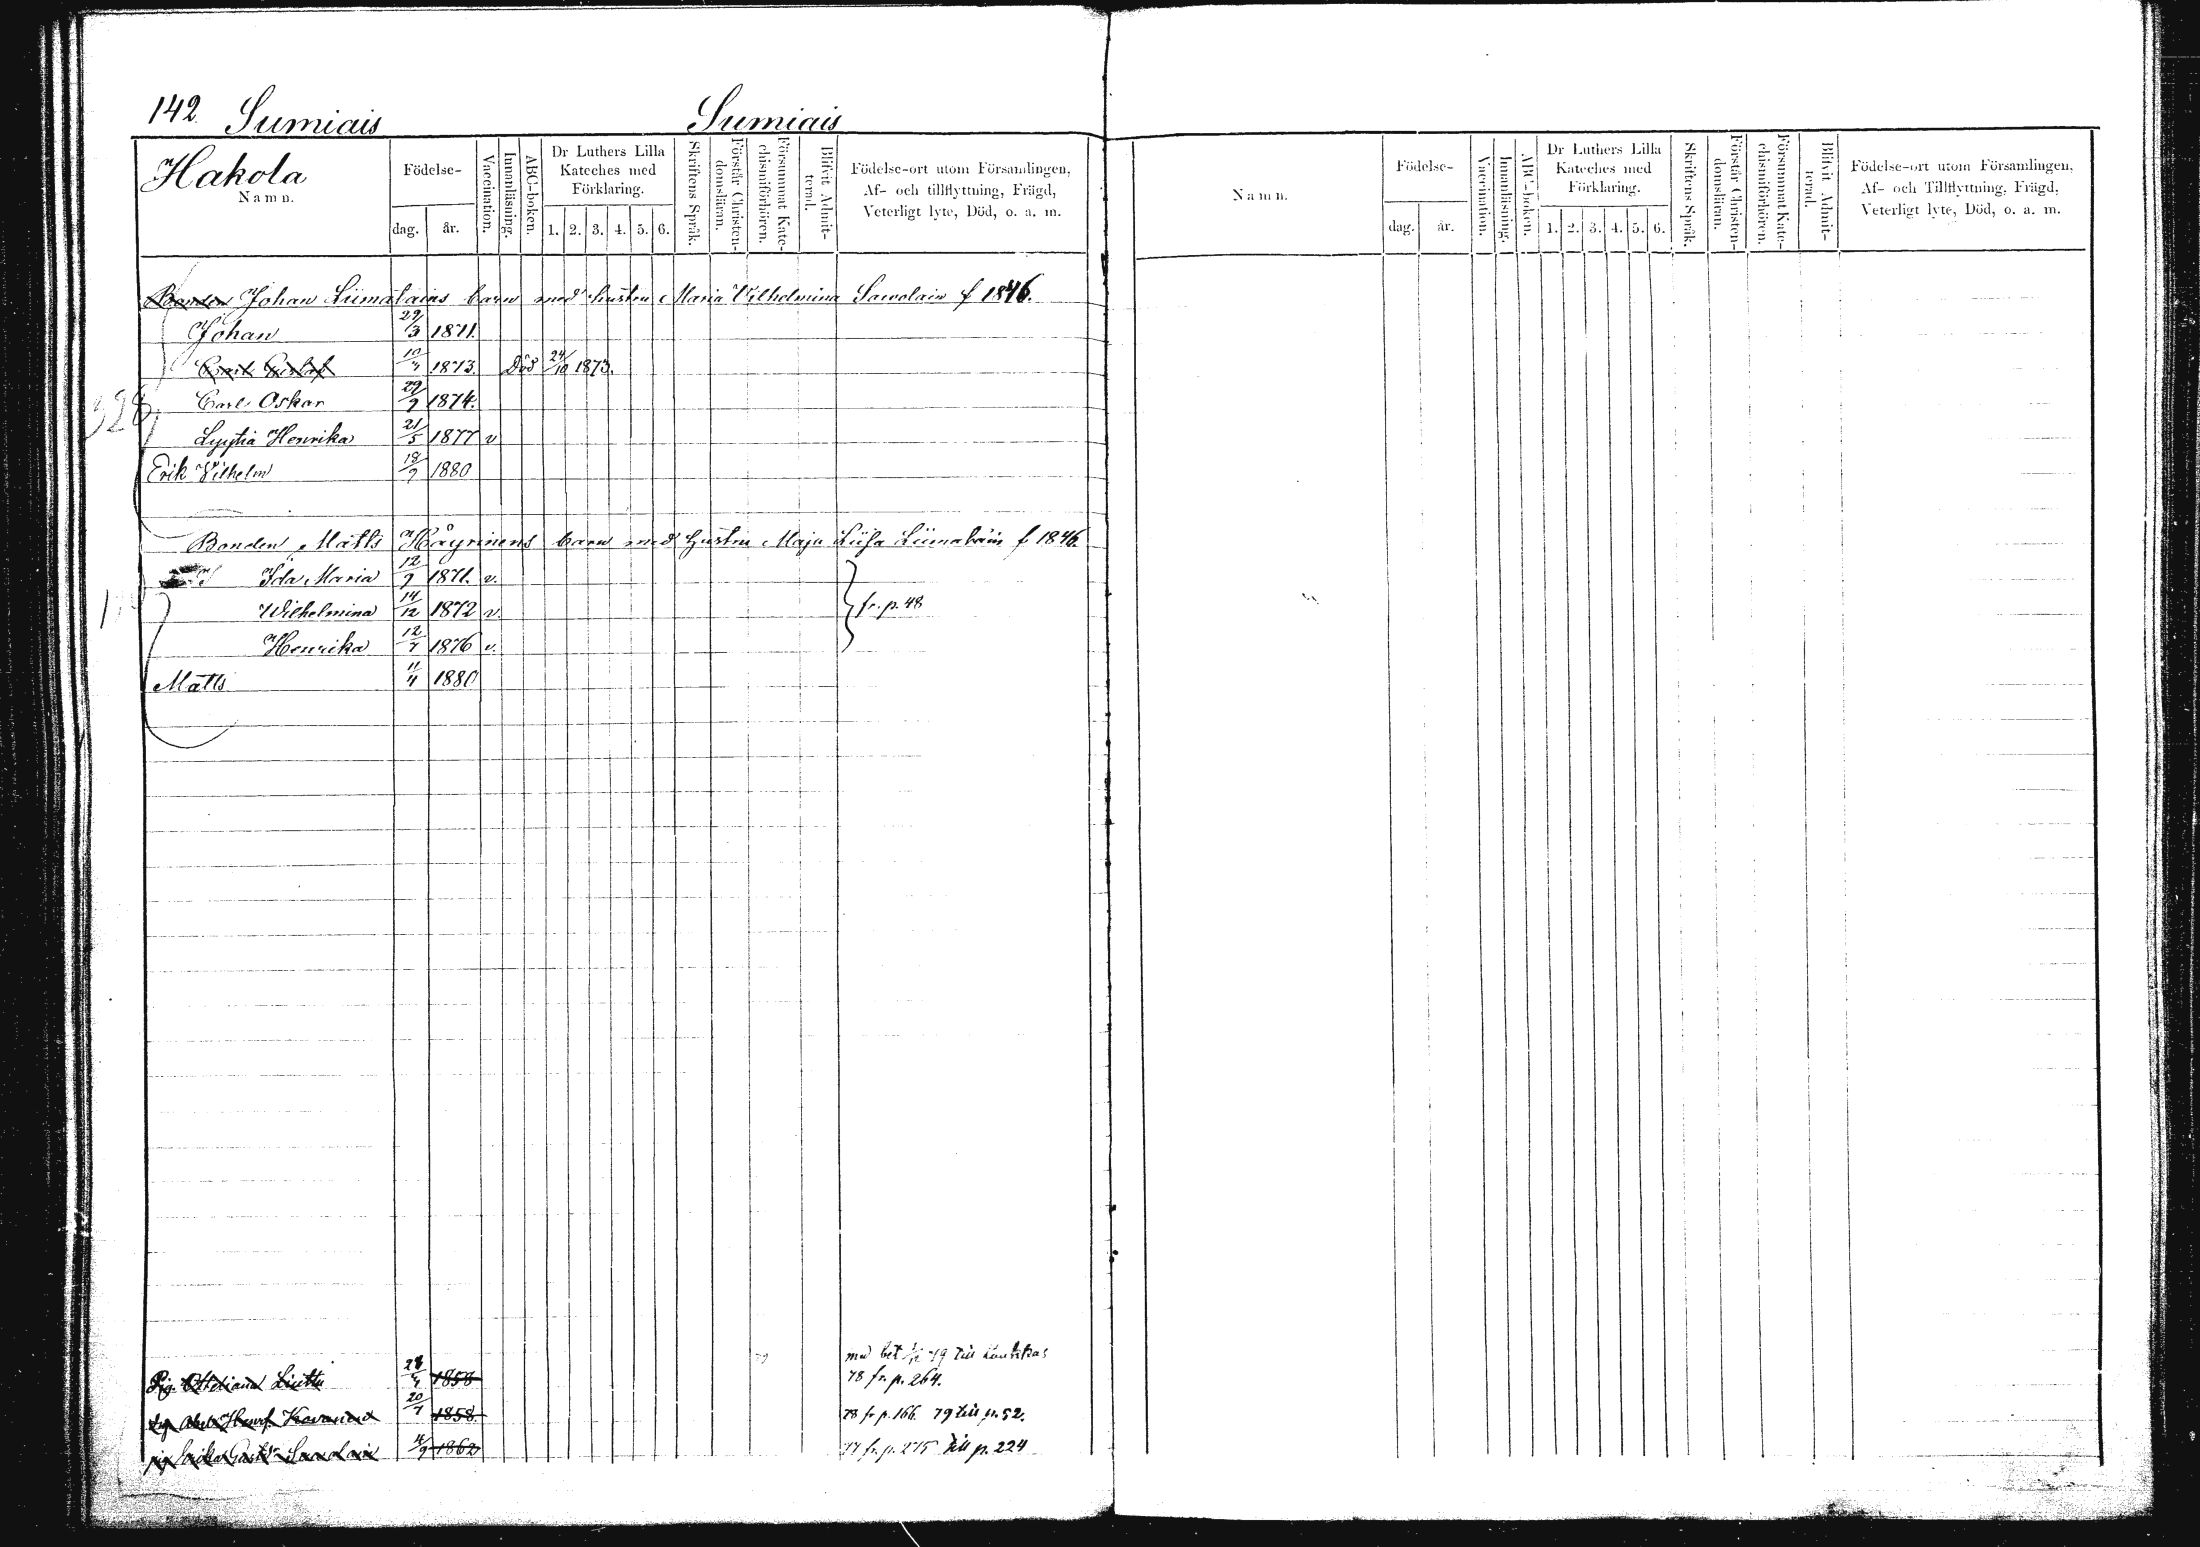 142. Sumiais Sumiais
Hakola
Namn.
Födelse-
dag. år.
Vaccination.
Innanläsning.
ABC-boken.
Dr Luthers Lilla
Kateches med
Förklaring.
1. 2. 3. 4. 5. 6.
Skriftens Språk.
Förstår Christen-
domsläran.
Försummat Kate-
chismiförhören.
Blifvit Admit-
terad.
Födelse-ort utom Församlingen,
Af- och tillflyttning, Frägd,
Veterligt lyte, Död, o. a. m.
Bonden Johan Liimatains barn med hustru Maria Vilhelmina Sawolain f 1846.
Johan 29/3 1871.
1873. Död 24/10 1873.
Carl Oskar 29/9 1874.
328
Lyytia Henrika 21/5 1877 v
Erik Vilhelm 18/9 1880
Bonden Matts Häyrinens barn med hustru Maja Liisa Liimatain f 1846.
Ida Maria 12/9 1871. v.
Wilhelmina 14/12 1872 v. fr. p. 48
Henrika 12/7 1876 v.
Matts 11/4 1880
med bet 79 till
Pig. 1858 78 fr. p. 264.
20/7 1858. 78 fr p. 166. 79 till p. 52.
pig 4/9 1862 77 fr. p. 275 till p. 224
Namn.
Födelse-
dag. år.
Vaccination.
Innanläsning.
ABC-boken.
Dr Luthers Lilla
Kateches med
Förklaring.
1. 2. 3. 4. 5. 6.
Skriftens Språk.
Förstår Christen-
domsläran.
Försummat Kate-
chismiförhören.
Blifvit Admit-
terad.
Födelse-ort utom Församlingen,
Af- och Tillflyttning, Frägd,
Veterligt lyte, Död, o. a. m.